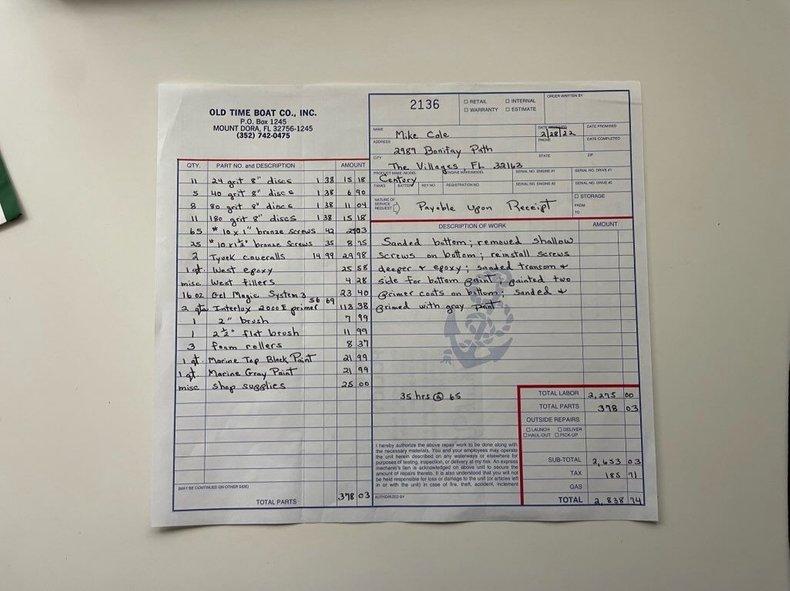 OLD TIME BOAT CO., INC.
P.O. Box 1245
MOUNT DORA, FL 32756-1245
(352) 742-0475
2136
□ RETAIL □ INTERNAL
□ WARRANTY □ ESTIMATE
ORDER WRITTEN BY
NAME Mike Cole
DATE 2/28/22
DATE PROMISED
ADDRESS 2987 Bonitay Path
PHONE
DATE COMPLETED
CITY The Villages, FL 32163
STATE
ZIP
Century
SERIAL NO. ENGINE #1
SERIAL NO. DRIVE #1
KEY NO.
REGISTRATION NO.
SERIAL NO. ENGINE #2
SERIAL NO. DRIVE #2
NATURE OF SERVICE REQUEST Payable Upon Receipt
□ STORAGE
FROM
TO
QTY. PART NO. and DESCRIPTION AMOUNT
11 24 grit 8" discs 1 38 15 18
5 40 grit 8" discs 1 38 6 90
8 80 grit 8" discs 1 38 11 04
11 180 grit 8" discs 1 38 15 18
65 #10 x 1" bronze screws 42
25 #10 x 1½" bronze screws 35 8 75
2 Tyvek coveralls 14 99 29 98
1 qt. West epoxy 25 58
misc West fillers 4 28
16 oz Gel Magic System 3 23 40
2 qts Interlux 2000E primer 56 69 113 38
1 2" brush 7 99
1 2½" flat brush 11 99
3 foam rollers 8 37
1 qt. Marine Top Black Paint 21 99
1 qt. Marine Gray Paint 21 99
misc shop supplies 25 00
(MAY BE CONTINUED ON OTHER SIDE)
TOTAL PARTS 378 03
DESCRIPTION OF WORK AMOUNT
Sanded bottom; removed shallow
screws on bottom; reinstall screws
deeper & epoxy; sanded transom &
side for bottom paint; painted two
primer coats on bottom; sanded &
primed with gray paint
35 hrs @ 65
I hereby authorize the above repair work to be done along with
the necessary materials. You and your employees may operate
the unit herein described on any waterways or elsewhere for
purposes of testing, inspection, or delivery at my risk. An express
mechanic's lien is acknowledged on above unit to secure the
amount of repairs thereto. It is also understood that you will not
be held responsible for loss or damage to the unit (or articles left
in or with the unit) in case of fire, theft, accident, inclement
AUTHORIZED BY
TOTAL LABOR 2,275 00
TOTAL PARTS 378 03
OUTSIDE REPAIRS
□ LAUNCH □ DELIVER
□ HAUL-OUT □ PICK-UP
SUB-TOTAL 2,653 03
TAX 185 71
GAS
TOTAL 2,838 74